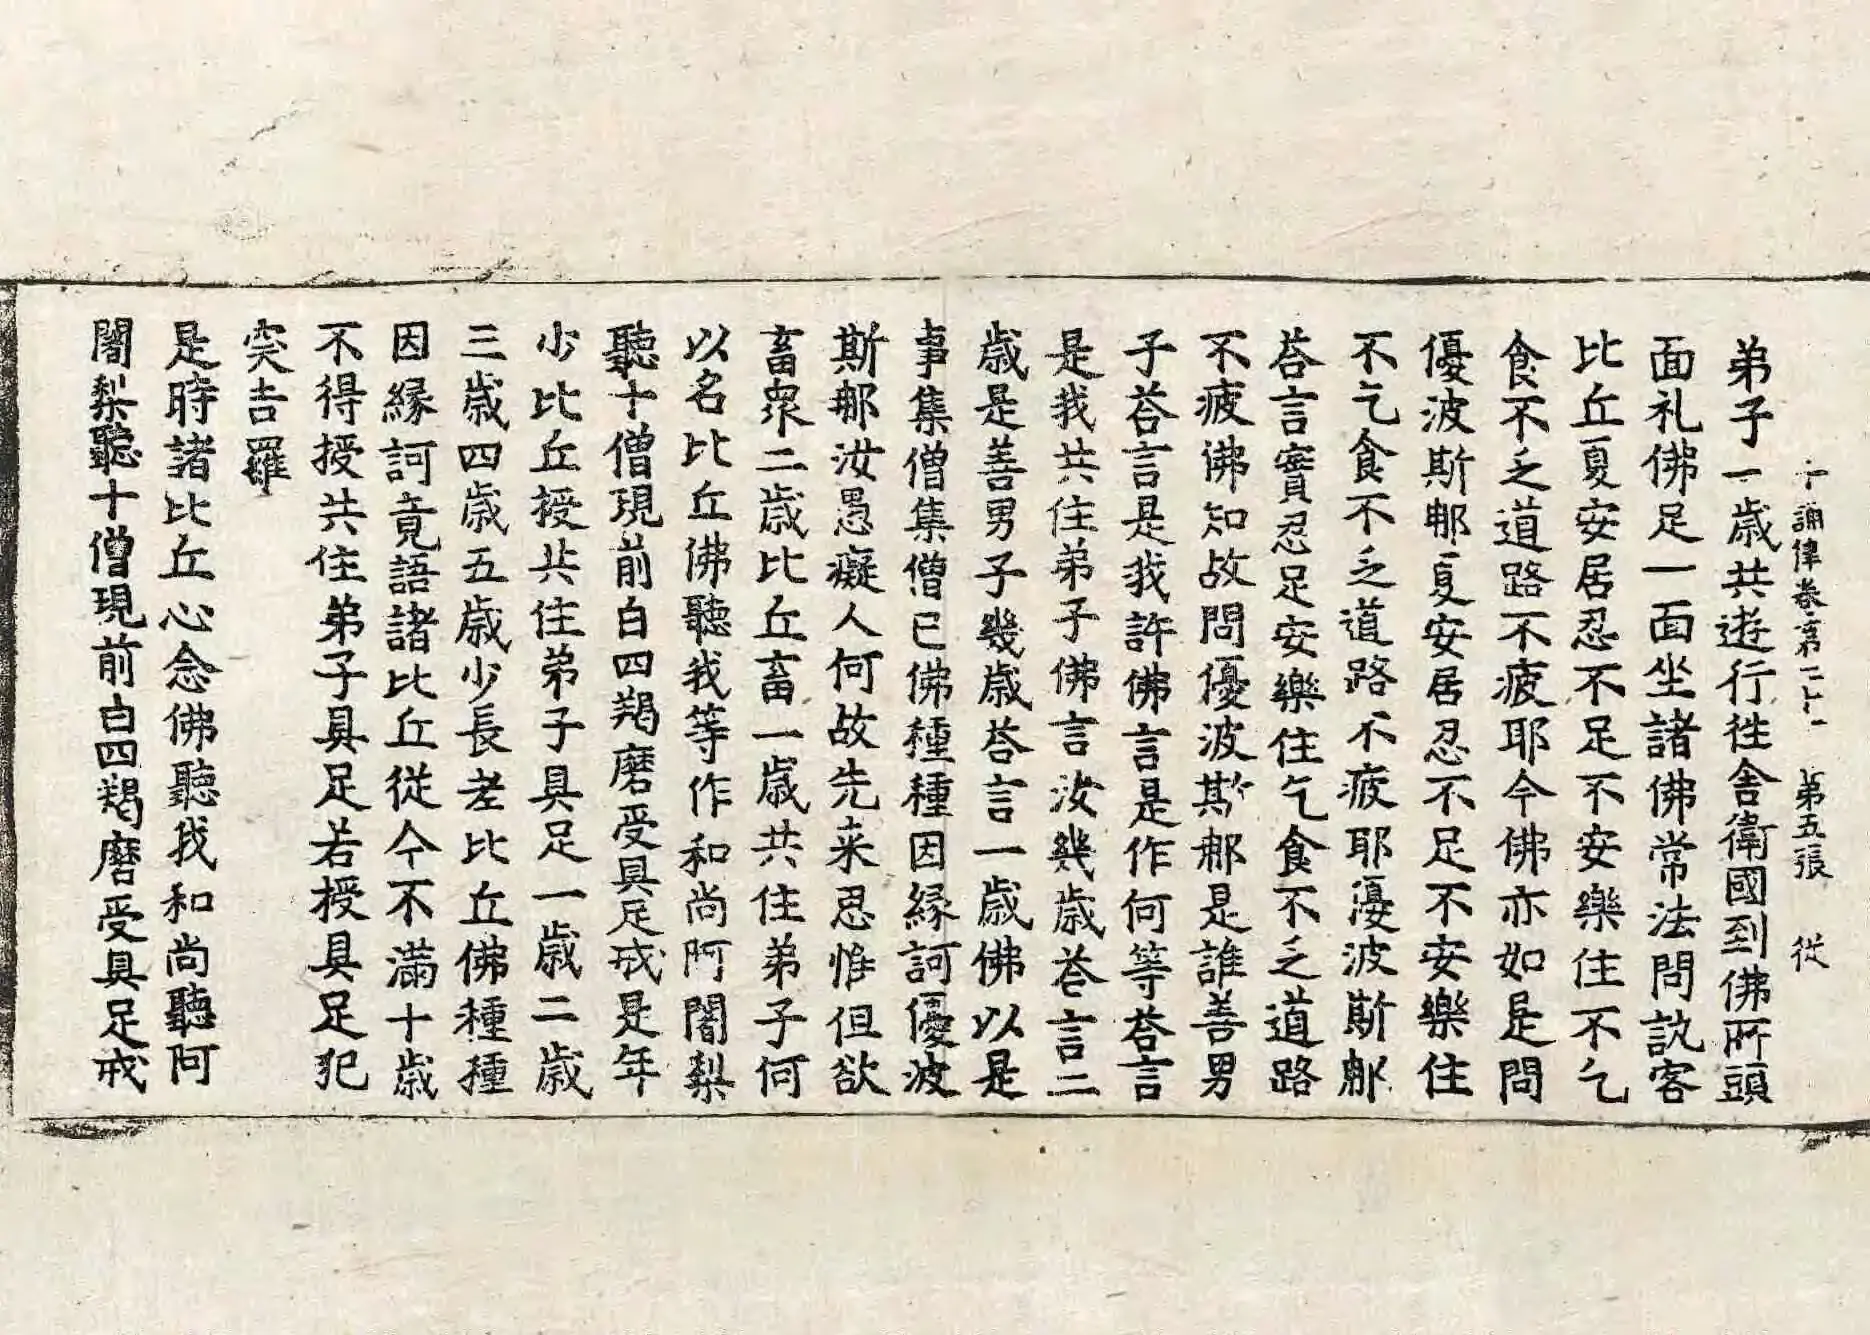 十誦律卷第二十一 第五張 従
弟子一歳共遊行徃舎衛國到佛所頭
面礼佛足一面坐諸佛常法問訊客
比丘夏安居忍不足不安樂住不乞
食不乏道路不疲耶今佛亦如是問
優波斯那夏安居忍不足不安樂住
不乞食不乏道路不疲耶優波斯那
荅言實忍足安樂住乞食不乏道路
不疲佛知故問優波斯那是誰善男
子荅言是我許佛言是作何等荅言
是我共住弟子佛言汝幾歳荅言二
歳是善男子幾歳荅言一歳佛以是
事集僧集僧已佛種種因縁訶優波
斯那汝愚癡人何故先来思惟但欲
畜衆二歳比丘畜一歳共住弟子何
以名比丘佛聽我等作和尚阿闍梨
聽十僧現前白四羯磨受具足戒是年
少比丘授共住弟子具足一歳二歳
三歳四歳五歳少長老比丘佛種種
因縁訶竟語諸比丘従今不滿十歳
不得授共住弟子具足若授具足犯
突吉羅
是時諸比丘心念佛聽我和尚聽阿
闍梨聽十僧現前白四羯磨受具足戒